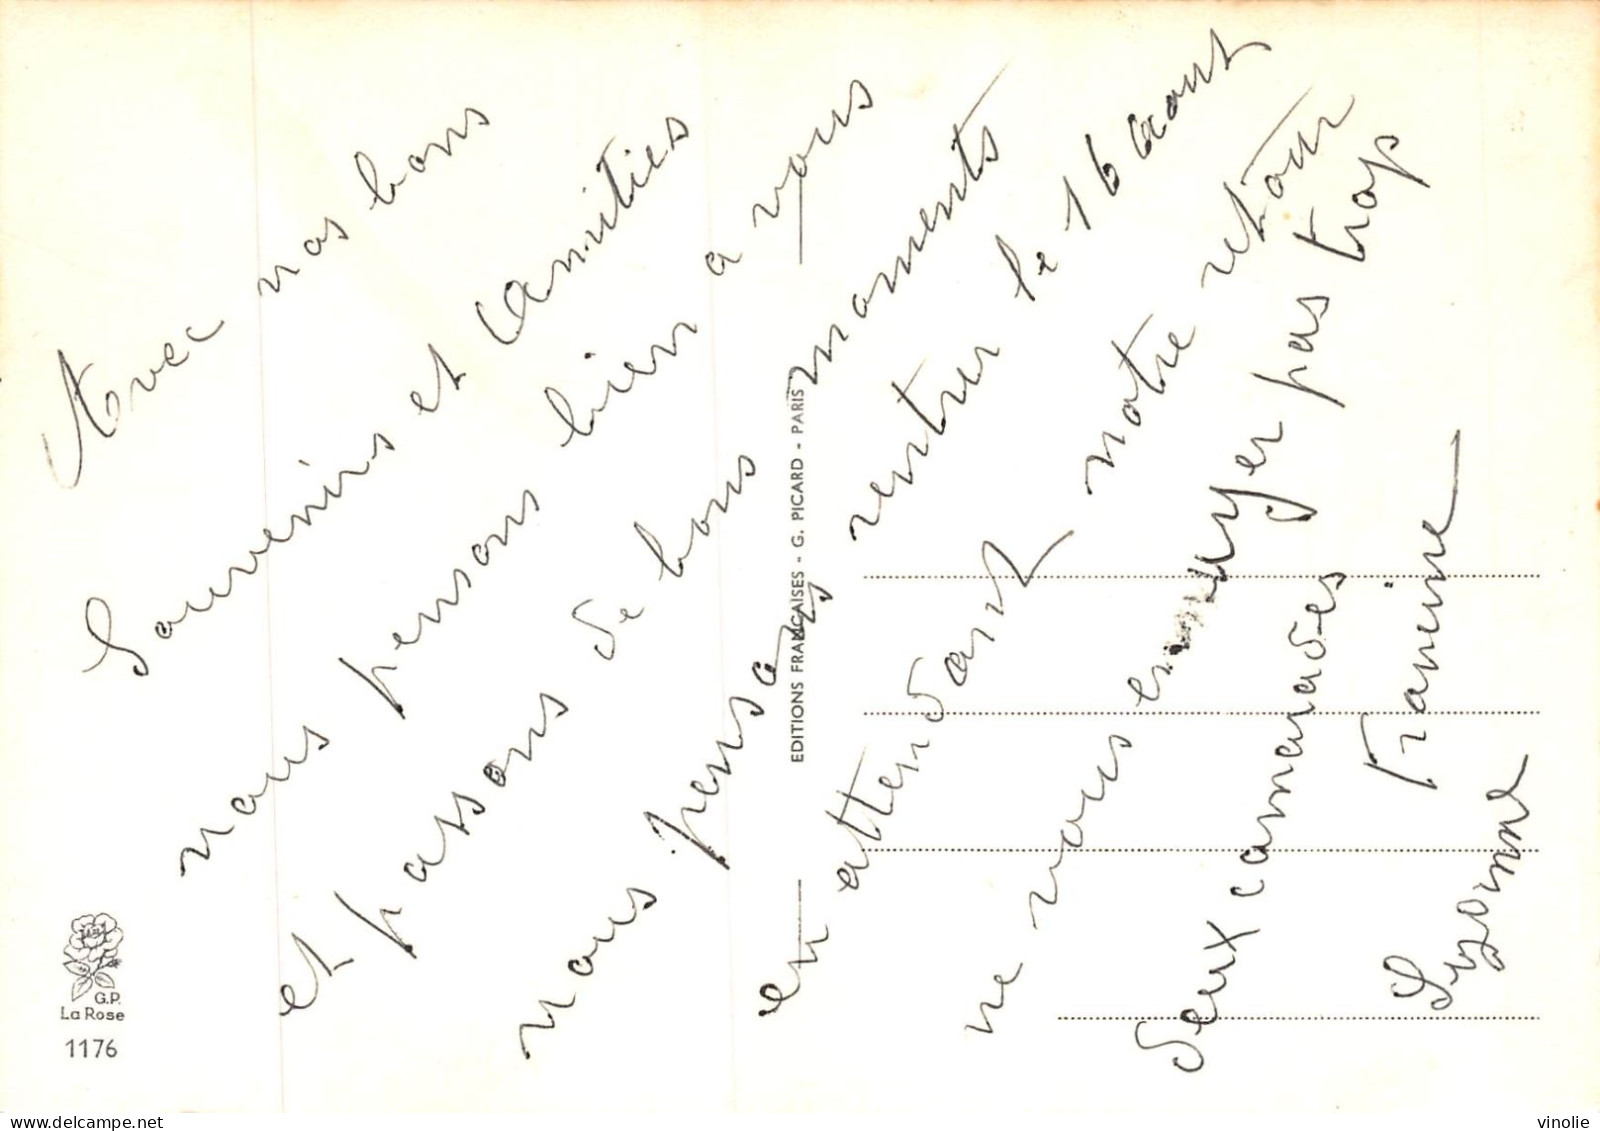 Avec nos bons
Souvenirs et Amitiés
nous pensons bien a vous
et passons de bons moments
nous pensons rentrer le 16 aout
en attendant notre retour
ne vous ennuyer pas trop
deux camarades
Francine
Suzonne
EDITIONS FRANÇAISES - G. PICARD - PARIS
G.P.
La Rose
1176
vinolie